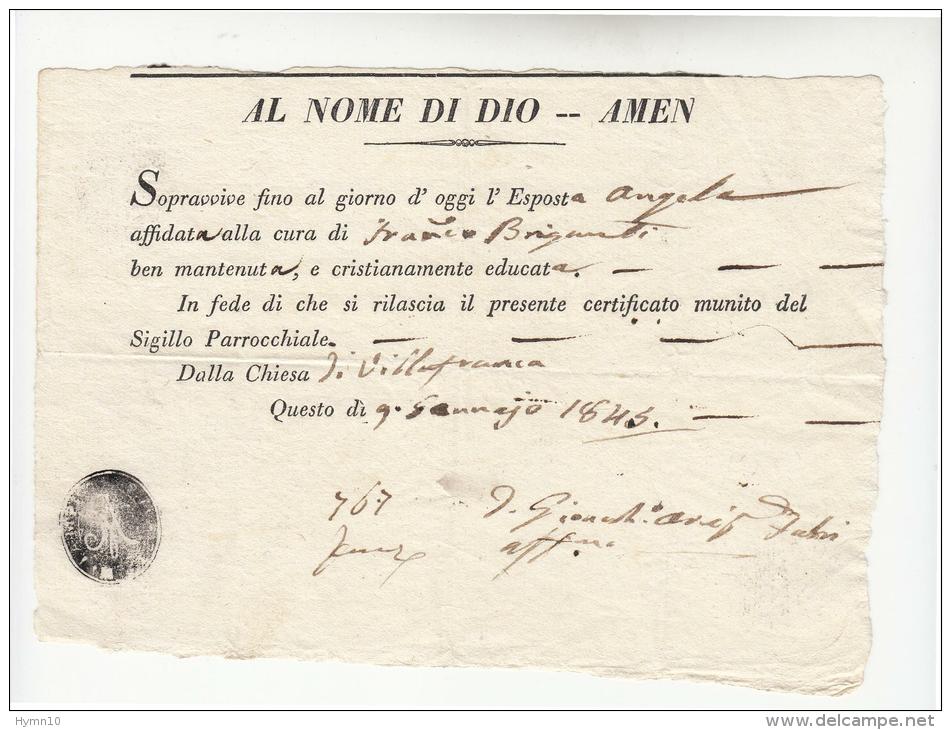 AL NOME DI DIO -- AMEN
Sopravvive fino al giorno d' oggi l' Esposta Angela
affidata alla cura di Franco Briganti
ben mantenuta, e cristianamente educata.
In fede di che si rilascia il presente certificato munito del
Sigillo Parrocchiale.
Dalla Chiesa di Villafranca
Questo dì 9. Gennajo 1845.
767
Fabri
Hymn10
www.delcampe.net